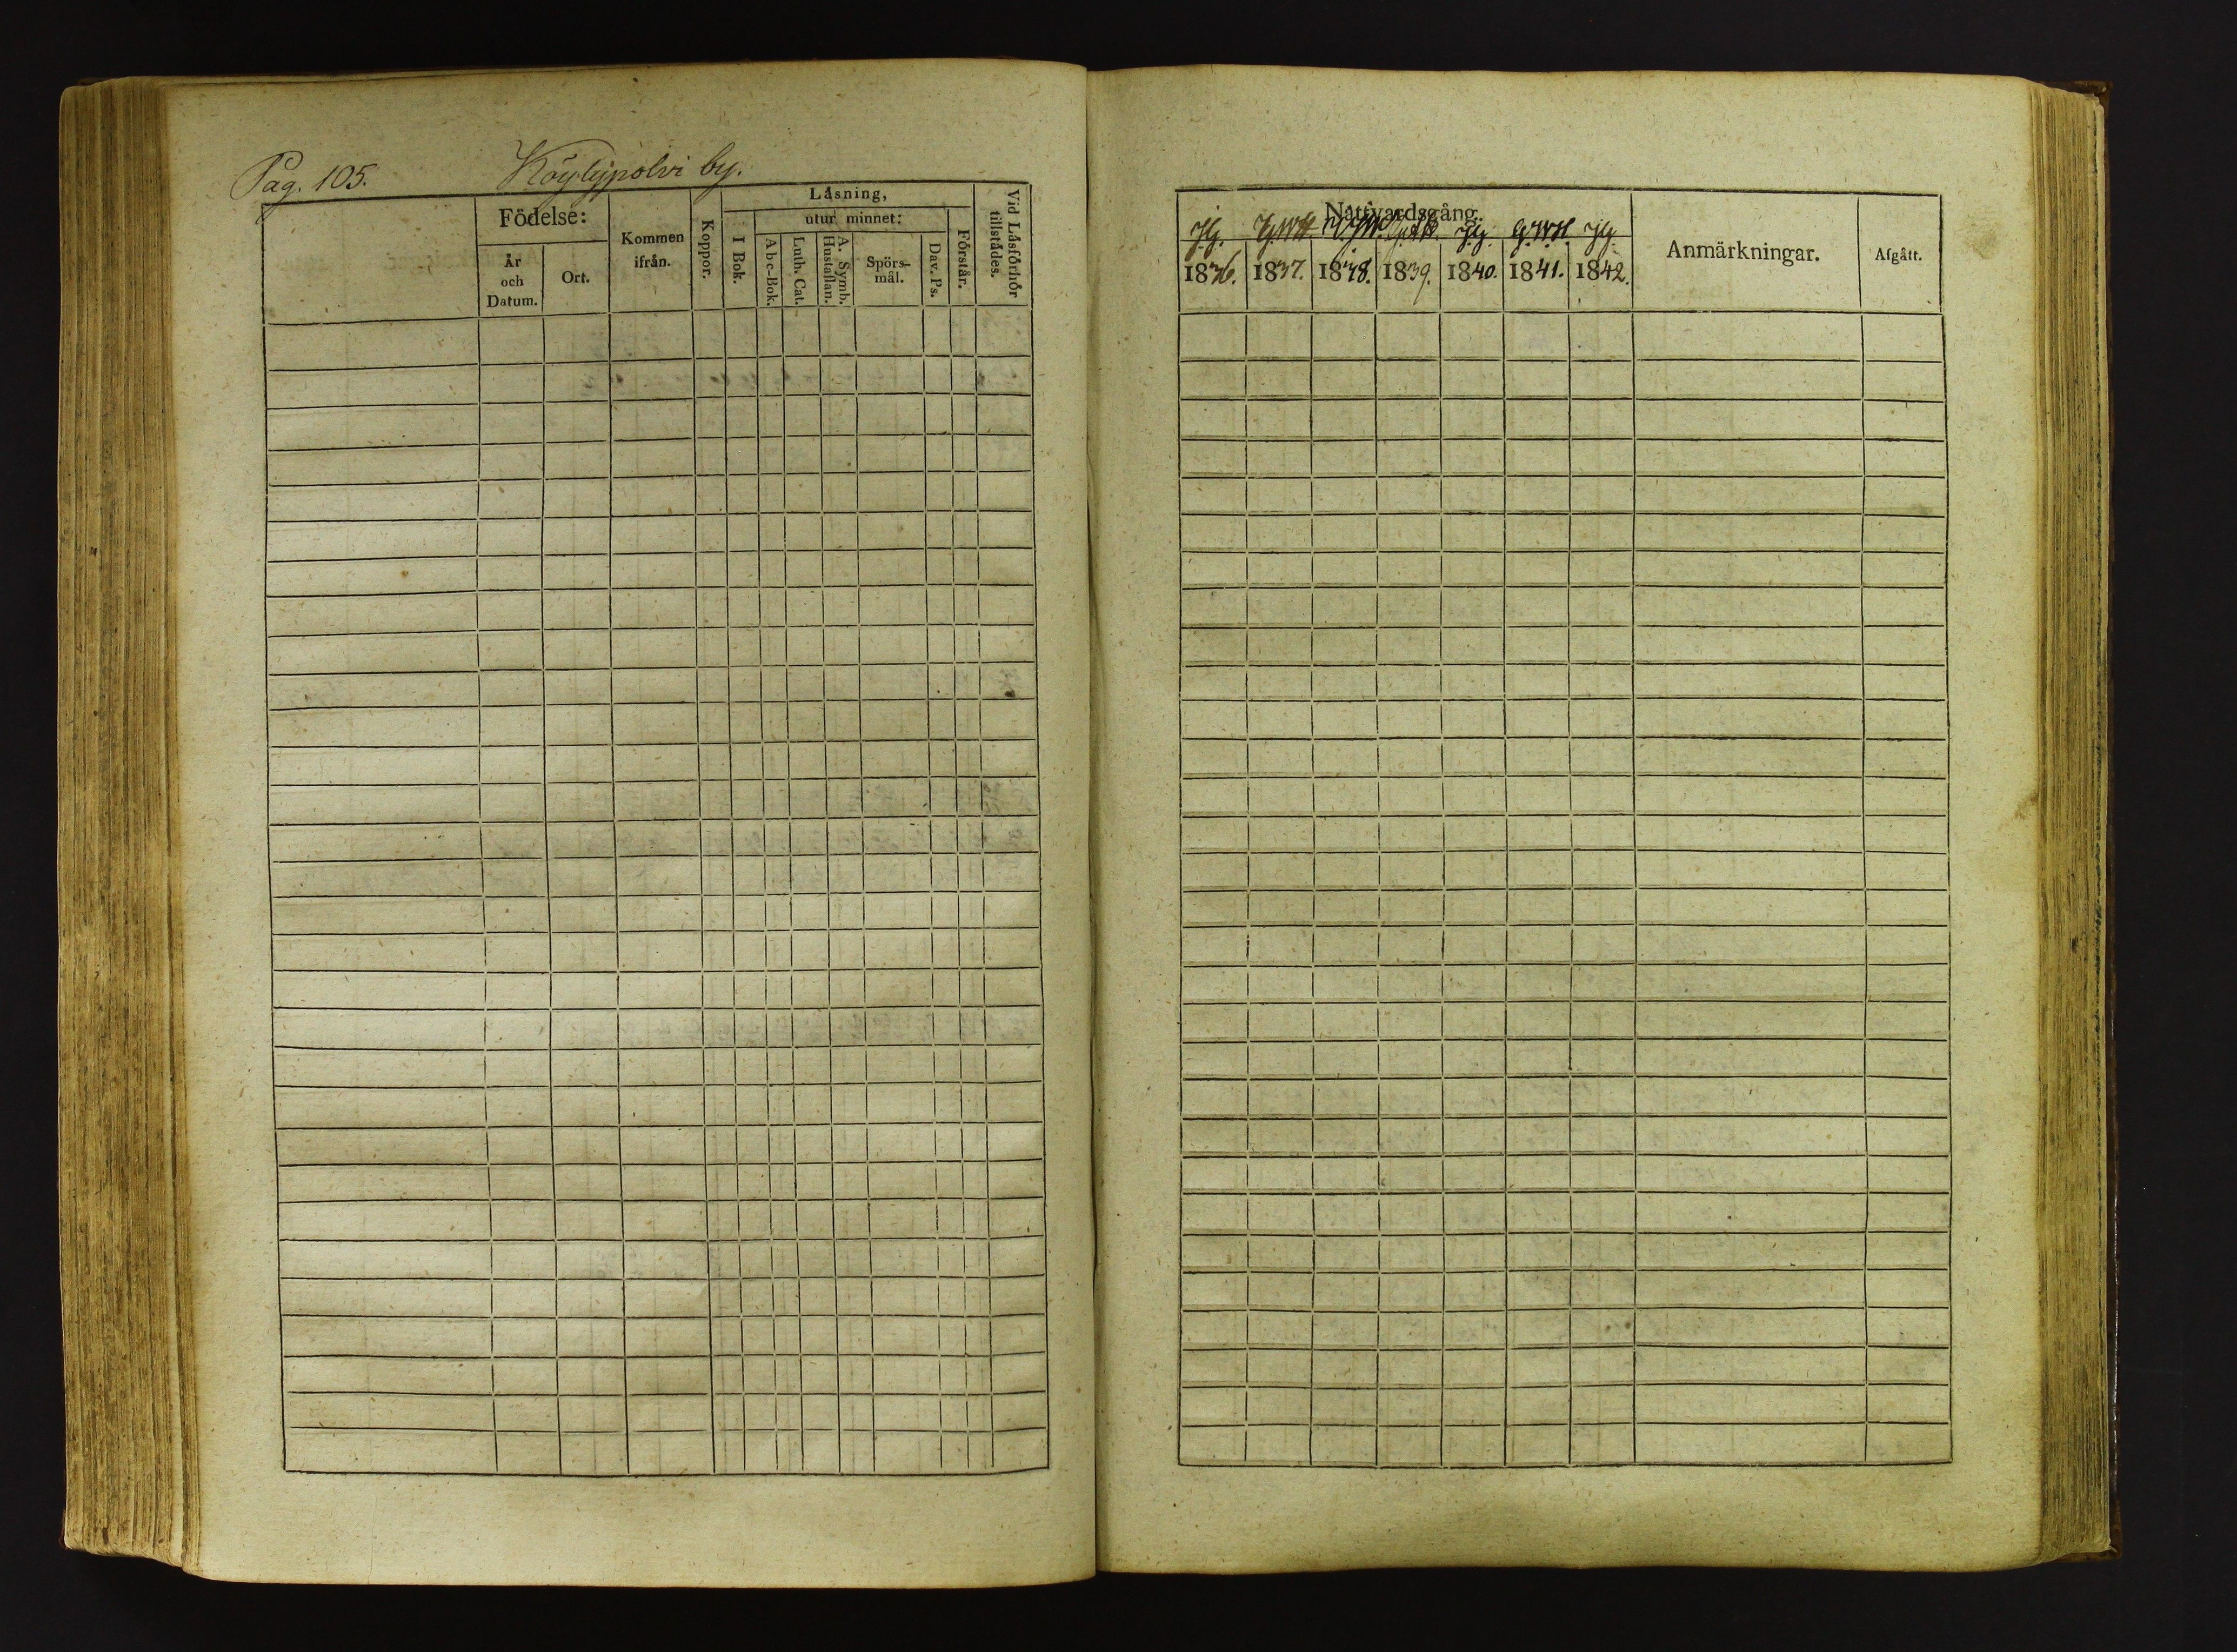 Pag. 105.
Födelse:
År
och
Datum.
Ort.
Kommen
ifrån.
Koppor.
Läsning,
I Bok.
utur minnet:
A b c-Bok.
Luth. Cat.
A. Symb.
Hustaflan.
Spörs-
mål.
Dav. Ps.
Förstår.
Vid Läsförhör
tillstädes.
Nattvardsgång.
J.G. G.W.H. J.G. G.W.H. J.G.
1836. 1837. 1838. 1839. 1840. 1841. 1842.
Anmärkningar.
Afgått.